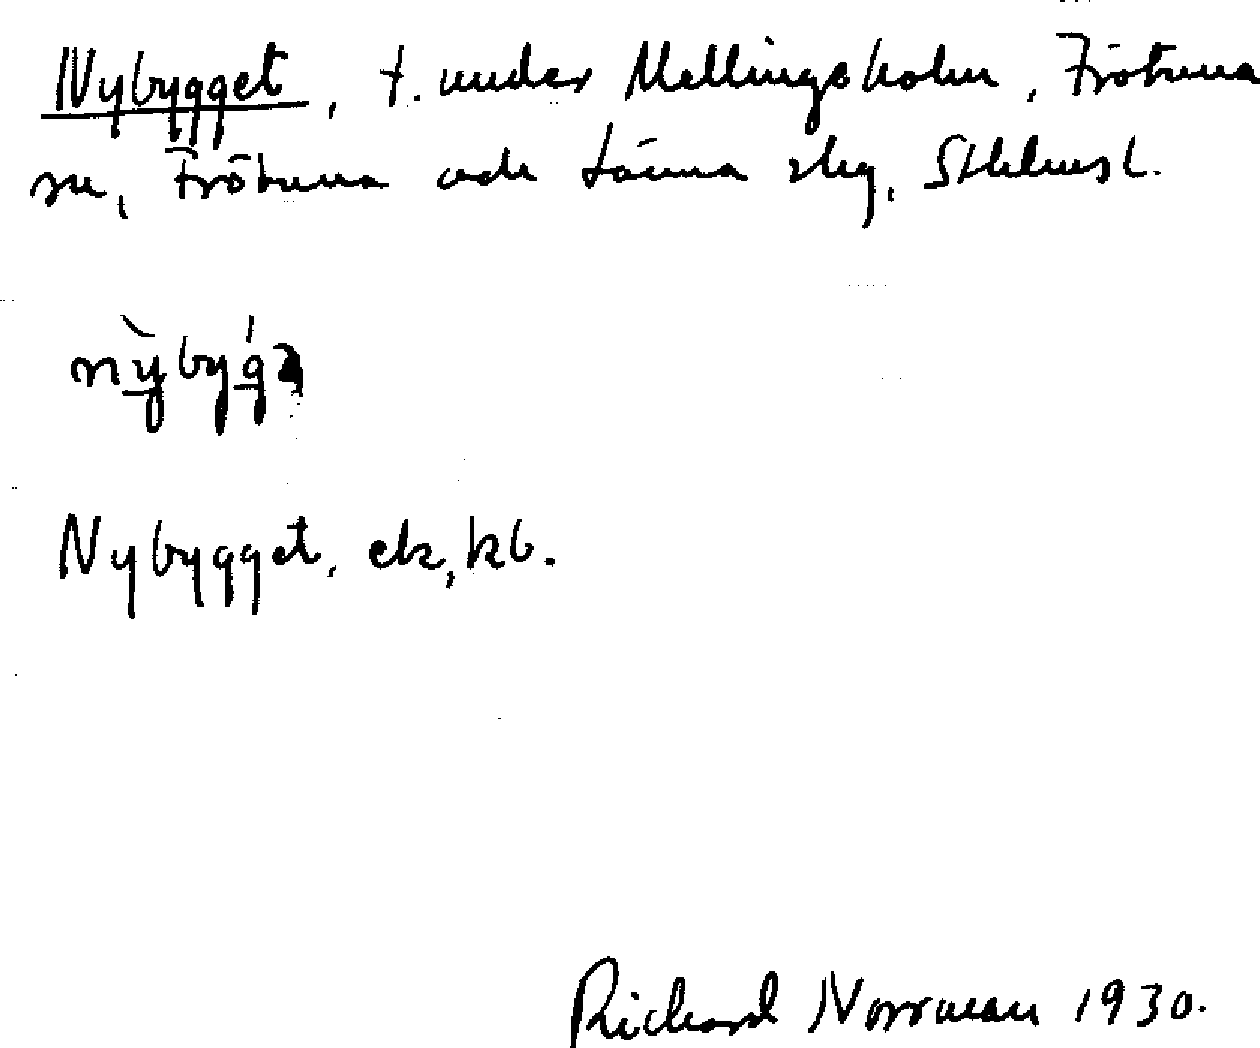 Nybygget, t. under Mellingsholm, Frötuna
sn, Frötuna och Länna slg, Sthlms l.
nỳbýgə
Nybygget, ek, kb.
Richard Norrman 1930.